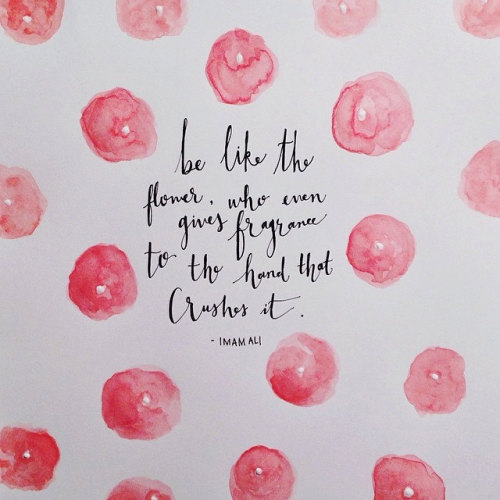 be like the
flower, who even
gives fragrance
to the hand that
Crushes it.
- IMAM ALI